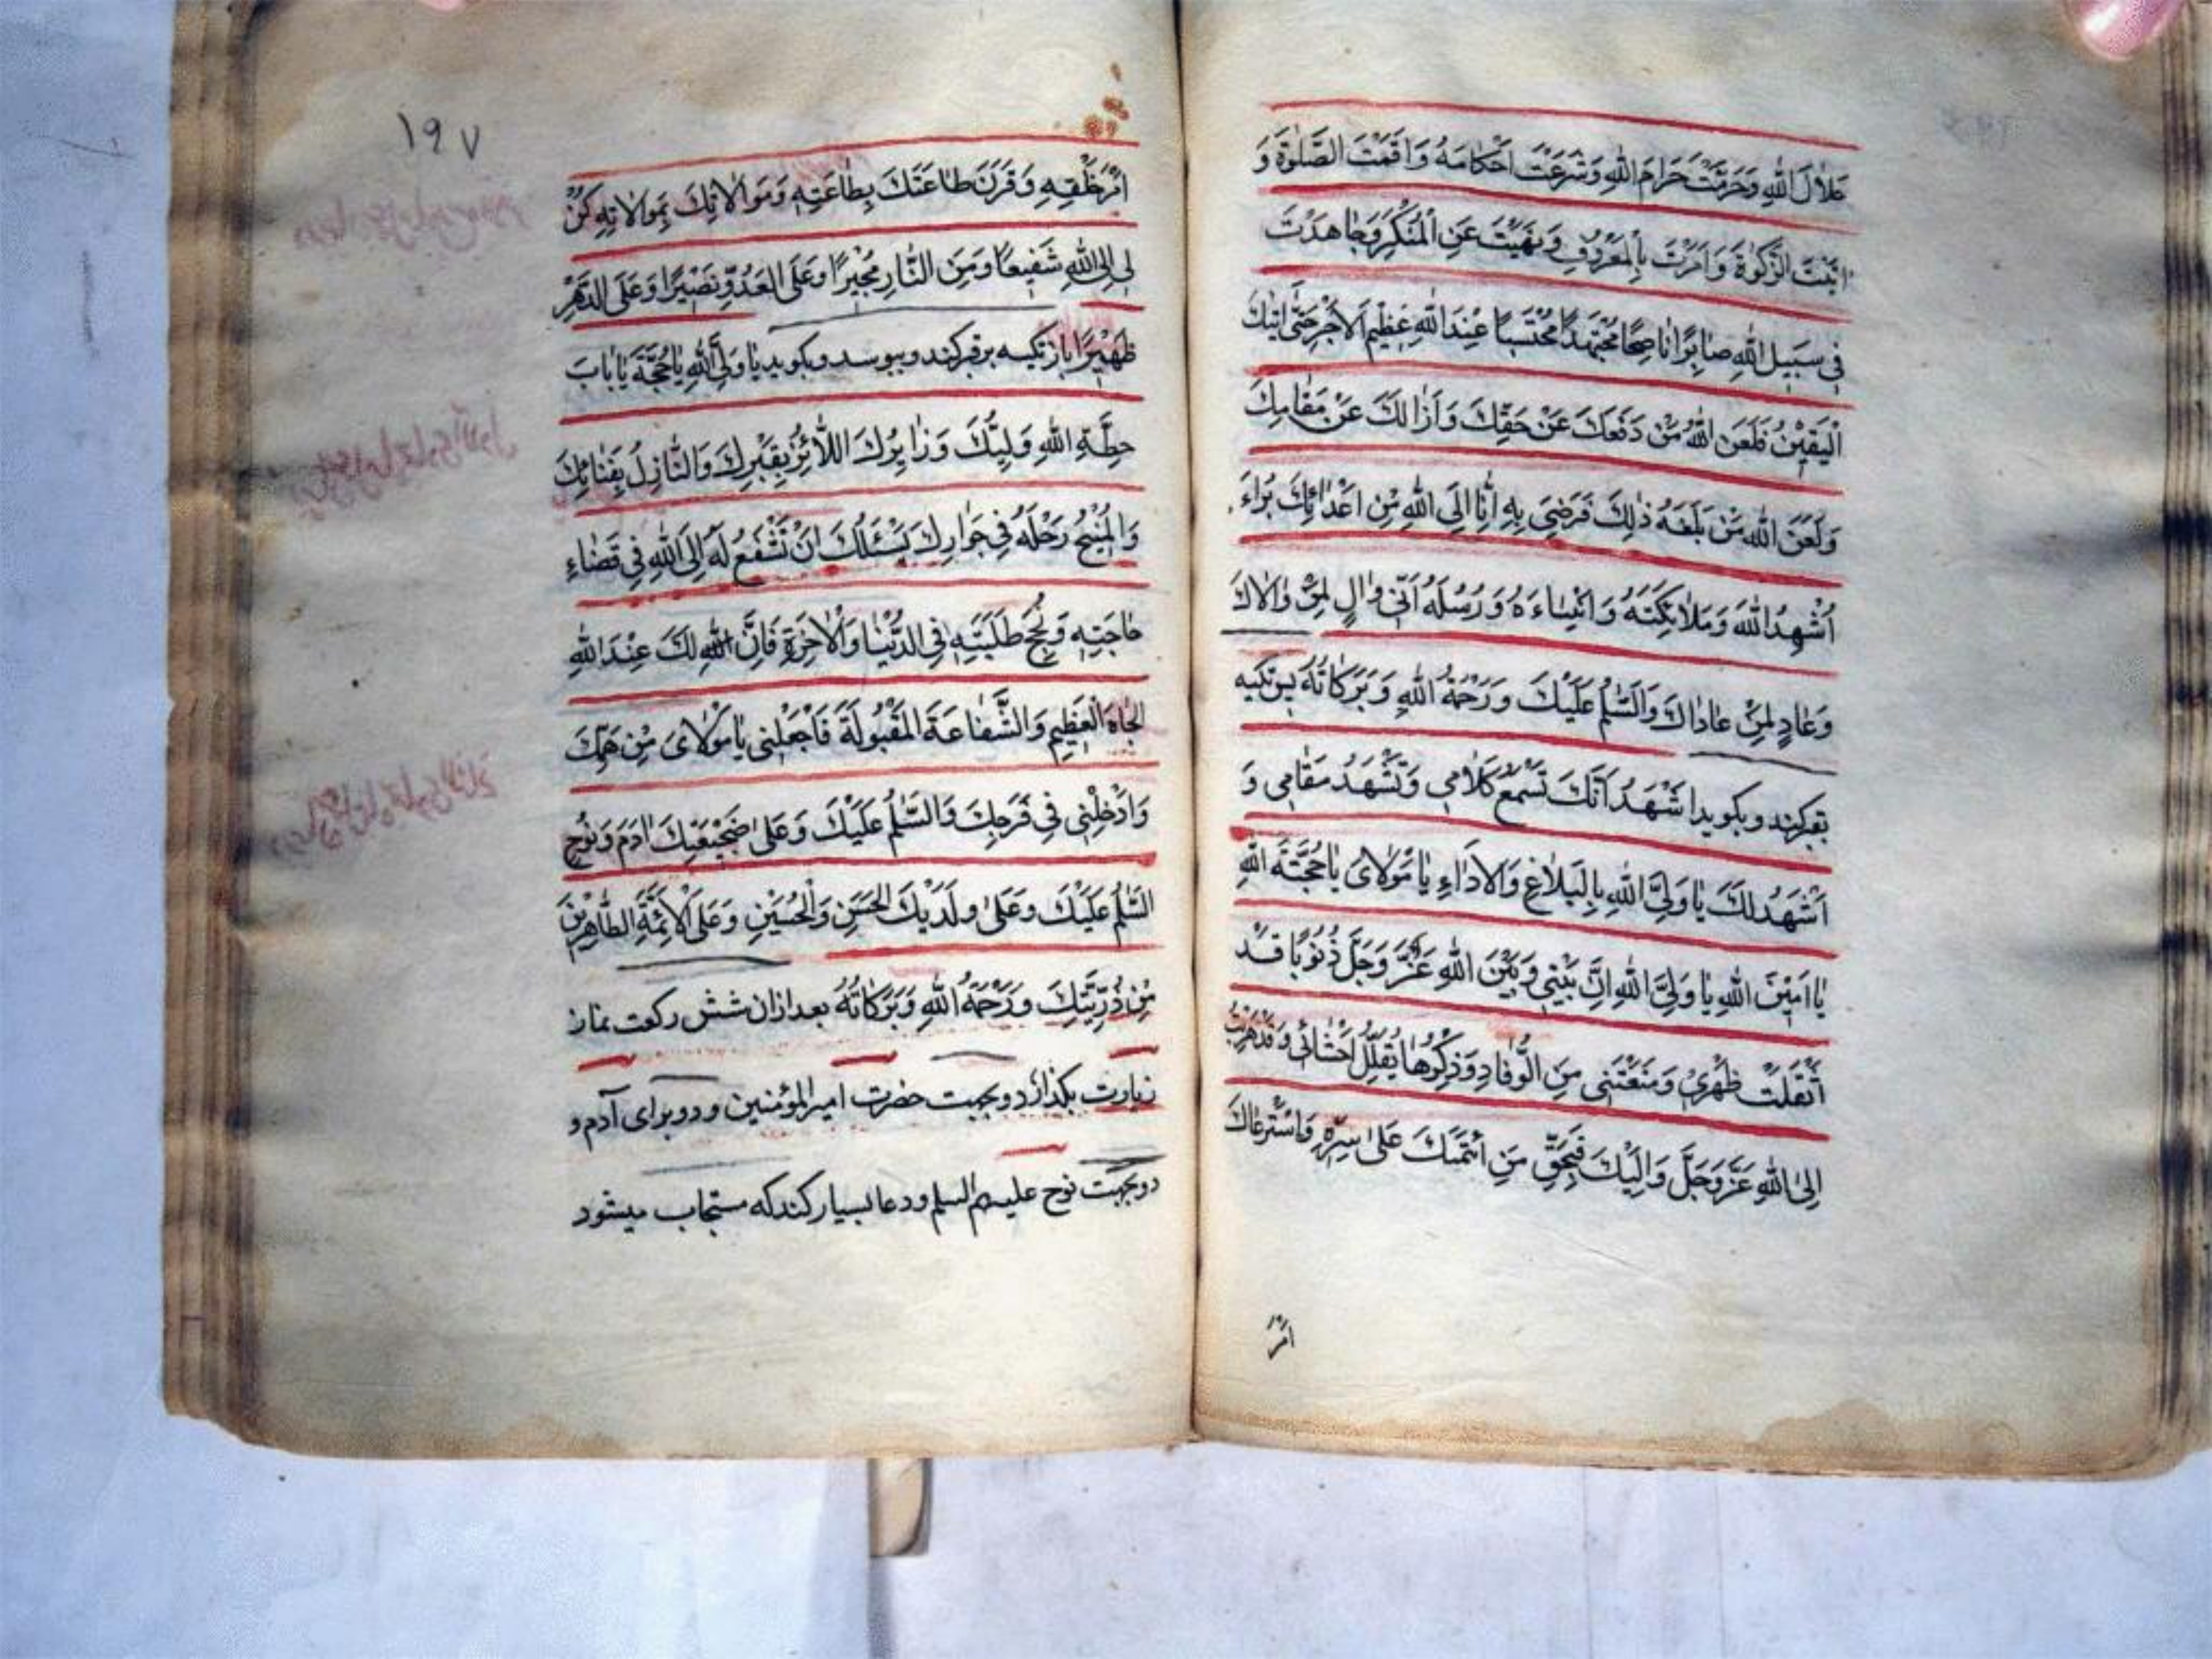 حَلاٰلَ اللّٰهِ وَحَرَّمْتَ حَرٰامَ اللّٰهِ وَشَرَعْتَ اَحْكٰامَهُ وَاَقَمْتَ الصَّلوٰةَ وَ
اتَيْتَ الزَّكوٰةَ وَاَمَرْتَ بِالْمَعْرُوفِ وَنَهَيْتَ عَنِ الْمُنْكَرِ وَجٰاهَدْتَ
فِي سَبِيلِ اللّٰهِ صٰابِرًا نٰاصِحًا مُجْتَهِدًا مُحْتَسِبًا عِنْدَ اللّٰهِ عَظِيمَ الْاَجْرِ حَتّٰى اَتٰيكَ
الْيَقِيْنُ فَلَعَنَ اللّٰهُ مَنْ دَفَعَكَ عَنْ حَقِّكَ وَاَزٰالَكَ عَنْ مَقٰامِكَ
وَلَعَنَ اللّٰه مَنْ بَلَغَهُ ذٰلِكَ فَرَضِيَ بِهِ اَنَا اِلَى اللّٰهِ مِنْ اَعْدٰائِكَ بُرٰاءَ
اُشْهِدُ اللّٰهَ وَمَلاٰئِكَتَهُ وَاَنْبِيٰاءَهُ وَرُسُلَهُ اَنّي وٰالٍ لِمَنْ وٰالاٰكَ
وَعٰادٍ لِمَنْ عٰادٰاكَ وَالسَّلٰمُ عَلَيْكَ وَرَحْمَةُ اللّٰهِ وَبَرَكٰاتُهُ پس تكيه
بقبر كند و بكويد اَشْهَدُ اَنَّكَ تَسْمَعُ كَلاٰمِي وَتَشْهَدُ مَقٰامِي وَ
اَشْهَدُ لَكَ يٰا وَلِيَّ اللّٰهِ بِالْبَلاٰغِ وَالْاَدٰاءِ يٰا مَوْلاٰىَ يٰا حُجَّةَ اللّٰهِ
يٰا اَمِيْنَ اللّٰهِ يٰا وَلِيَّ اللّٰهِ اِنَّ بَيْنِي وَبَيْنَ اللّٰهِ عَزَّ وَجَلَّ ذُنُوبًا قَدْ
اَثْقَلَتْ ظَهْرِي وَمَنَعَتْنِي مِنَ الرُّقٰادِ وَذِكْرُهٰا يُقَلِّلُ اَحْشٰائِي وَقَدْ هَرَبْتُ
اِلَى اللّٰهِ عَزَّ وَجَلَّ وَاِلَيْكَ فَبِحَقِّ مَنِ ائْتَمَنَكَ عَلٰى سِرِّهِ وَاسْتَرْعٰاكَ
امر
۱۹۷
اَمْرَ خَلْقِهِ وَقَرَنَ طٰاعَتَكَ بِطٰاعَتِهِ وَمَوٰالاٰتِكَ بِمَوٰالاٰتِهِ كُنْ
لِي اِلَى اللّٰهِ شَفِيعًا وَمِنَ النّٰارِ مُجِيْرًا وَعَلَى الْعَدُوِّ نَصِيْرًا وَعَلَى الدَّهْرِ
ظَهِيْرًا باز تكيه برقبر كند و ببوسد و بكويد يٰا وَلِيَّ اللّٰهِ يٰا حُجَّةَ يٰا بٰابَ
حِطَّةِ اللّٰهِ وَلِيُّكَ وَزٰايِرُكَ اللاَّئِزُ بِقَبْرِكَ وَالنّٰازِلُ بِفَنٰائِكَ
وَالْمُنِيْخُ رَحْلَهُ فِي جَوٰارِكَ يَسْئَلُكَ اَنْ تَشْفَعَ لَهُ اِلَى اللّٰهِ فِي قَضٰاءِ
حٰاجَتِهِ وَنُجْحِ طَلِبَتِهِ فِي الدُّنْيٰا وَالْاٰخِرَةِ فَاِنَّ اللّٰهِ لَكَ عِنْدَ اللّٰهِ
الْجٰاهَ الْعَظِيمِ وَالشَّفٰاعَةَ الْمَقْبُولَةَ فَاجْعَلْنِي يٰا مَوْلاٰىَ مِنْ هَمِّكَ
وَاَدْخِلْنِي فِي فَرَحِكَ وَالسَّلٰمُ عَلَيْكَ وَعَلٰى ضَجِيْعَيْكَ اٰدَمَ وَنُوْحٍ
السَّلٰمُ عَلَيْكَ وَعَلٰى وَلَدَيْكَ الْحَسَنِ وَالْحُسَيْنِ وَعَلَى الْاَئِمَّةِ الطّٰاهِرِيْنَ
مِنْ ذُرِّيَّتِكَ وَرَحْمَةُ اللّٰهِ وَبَرَكٰاتُهُ بعد ازان شش ركعت نماز
زيارت بكذارد دو بجهت حضرت امير المؤمنين و دو براى آدم و
دو بجهت نوح عليهم السلم و دعا بسيار كند كه مستجاب ميشود